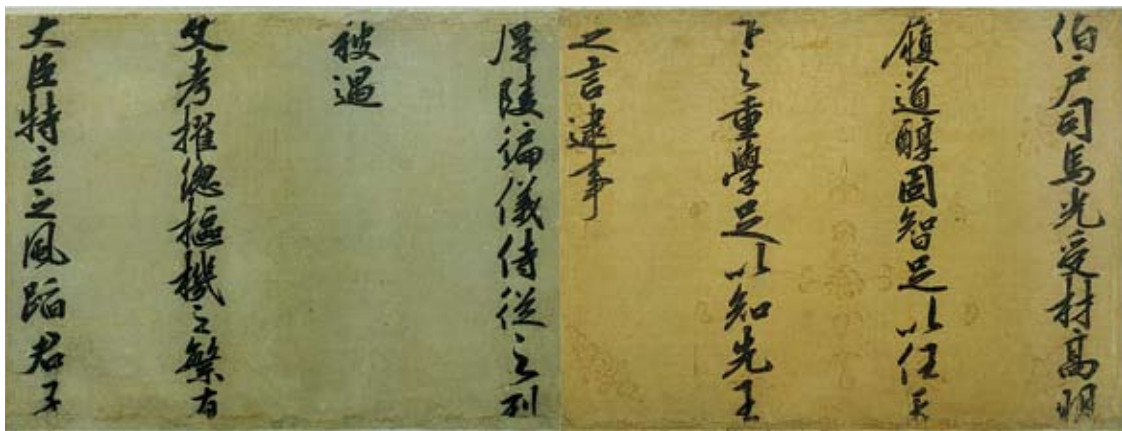 伯户司馬光受材高明
履道醇固智足以任天
下之重學足以知先王
之言逮事
厚陵徧儀侍從之列
被遇
文考擢總樞機之繁有
大臣特立之風蹈君子